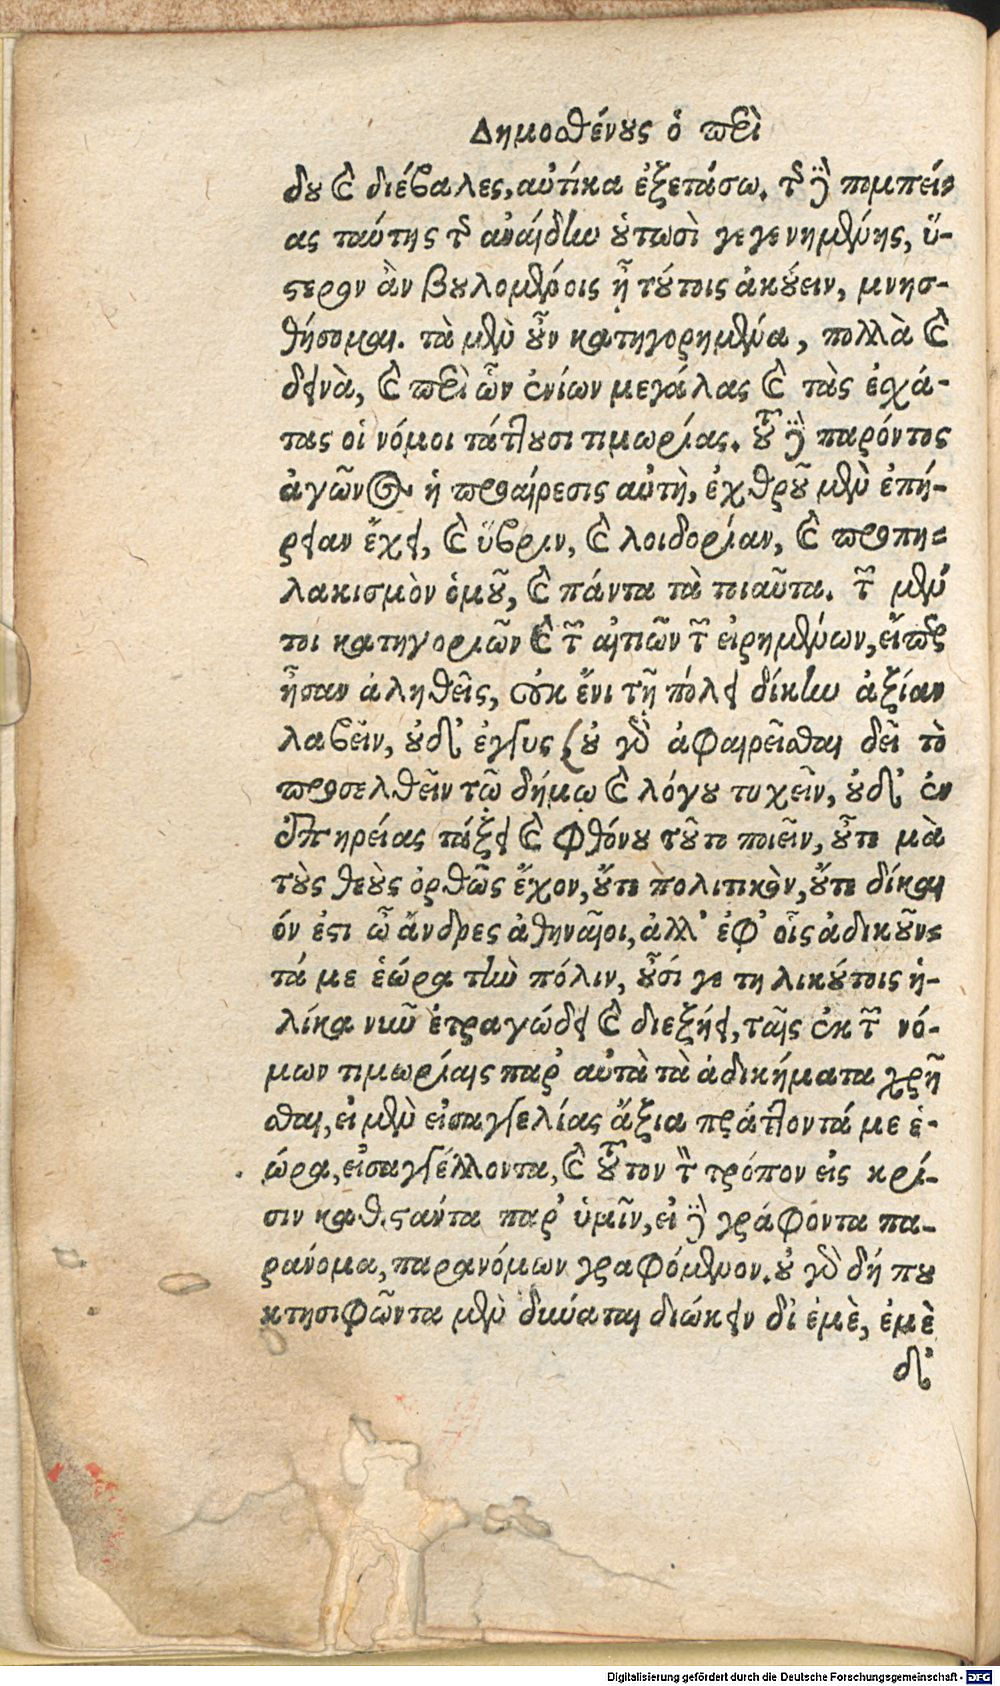 Δημοσθένους ὁ περὶ
δου καὶ διέβαλες, αὐτίκα ἐξετάσω. τῆς δὲ πομπεί-
ας ταύτης τῆς ἀναίδην οὑτωσὶ γεγενημένης, ὕ-
στερον ἂν βουλομένοις ᾖ τούτοις ἀκούειν, μνησ-
θήσομαι. τὰ μὲν οὖν κατηγορημένα, πολλὰ καὶ
δεινὰ, καὶ περὶ ὧν ἐνίων μεγάλας καὶ τὰς ἐσχά-
τας οἱ νόμοι τάττουσι τιμωρίας. τοῦ δὲ παρόντος
ἀγῶνος ἡ προαίρεσις αὐτὴ, ἐχθροῦ μὲν ἐπή-
ρειαν ἔχει, καὶ ὕβριν, καὶ λοιδορίαν, καὶ προπη-
λακισμὸν ὁμοῦ, καὶ πάντα τὰ τοιαῦτα. τῶν μέν
τοι κατηγοριῶν καὶ τῶν αἰτιῶν τῶν εἰρημένων, εἴπερ
ἦσαν ἀληθεῖς, οὐκ ἔνι τῇ πόλει δίκην ἀξίαν
λαβεῖν, οὐδ' ἐγγύς (οὐ γὰρ ἀφαιρεῖσθαι δεῖ τὸ
προσελθεῖν τῷ δήμῳ καὶ λόγου τυχεῖν, οὐδ' ἐν
ἐπηρείας τάξει καὶ φθόνου τοῦτο ποιεῖν, οὔτε μὰ
τοὺς θεοὺς ὀρθῶς ἔχον, οὔτε πολιτικὸν, οὔτε δίκαι
όν ἐστι ὦ ἄνδρες ἀθηναῖοι, ἀλλ' ἐφ' οἷς ἀδικοῦν-
τά με ἑώρα τὴν πόλιν, οὖσί γε τηλικούτοις ἡ-
λίκα νῦν ἐτραγώδει καὶ διεξήει, ταῖς ἐκ τῶν νό-
μων τιμωρίαις παρ' αὐτὰ τὰ ἀδικήματα χρῆ
σθαι, εἰ μὲν εἰσαγγελίας ἄξια πράττοντά με ἑ-
ώρα, εἰσαγγέλλοντα, καὶ τοῦτον τὸν τρόπον εἰς κρί-
σιν καθιστάντα παρ' ὑμῖν, εἰ δὲ γράφοντα πα-
ράνομα, παρανόμων γραφόμενον. οὐ γὰρ δή που
κτησιφῶντα μὲν δύναται διώκειν δι' ἐμὲ, ἐμὲ
δ'
Digitalisierung gefördert durch die Deutsche Forschungsgemeinschaft - DFG